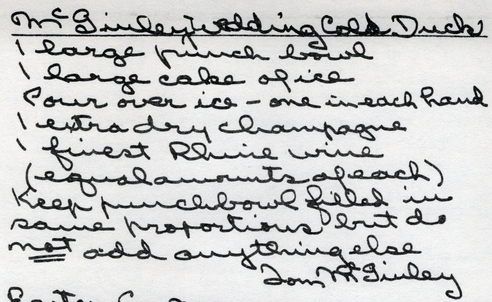 McGinley Wedding Cold Duck
1 large punch bowl
1 large cake of ice
Pour over ice - one in each hand
1 extra dry champagne
1 finest Rhine wine
(equal amounts of each)
Keep punchbowl filled in
same proportions but do
not add anything else
Tom McGinley